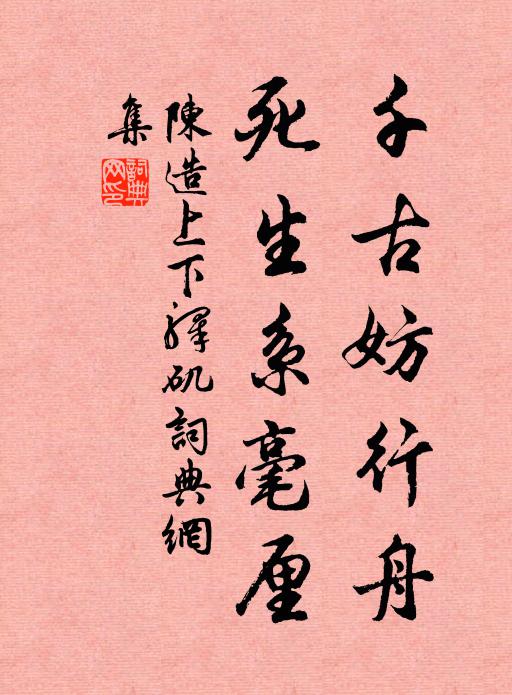 千古妨行舟
死生系毫厘
陳造上下驛矶詞典網
集
詞典网印